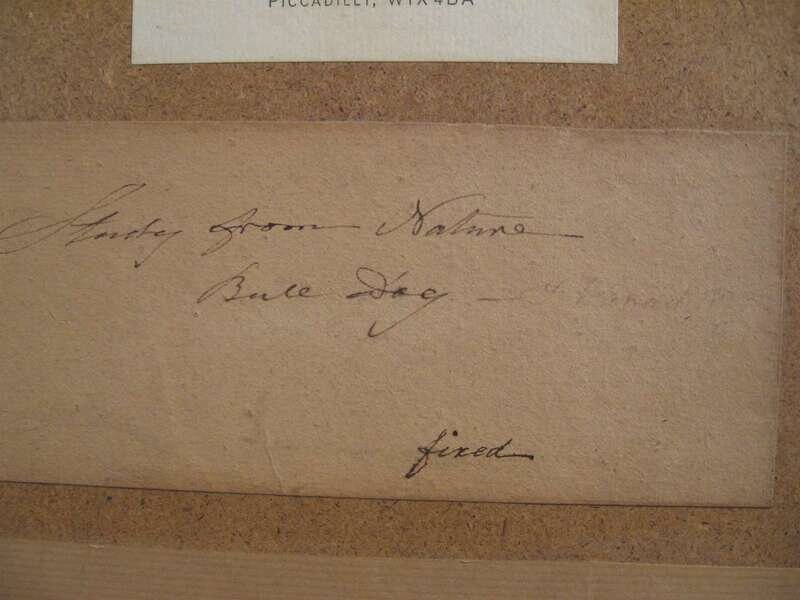 PICCADILLY, W1X 4BA
Study from Nature
Bull Dog –
fixed